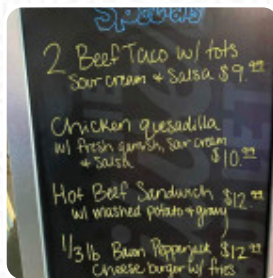 Specials
2 Beef Taco w/ tots
Sour cream + Salsa $9.99
Chicken quesadilla
w/ fresh garnish, Sour cream
+ Salsa $10.99
Hot Beef Sandwich $12.99
w/ mashed potato + gravy
1/3 lb Bacon Pepperjack $12.99
Cheese burger w/ fries